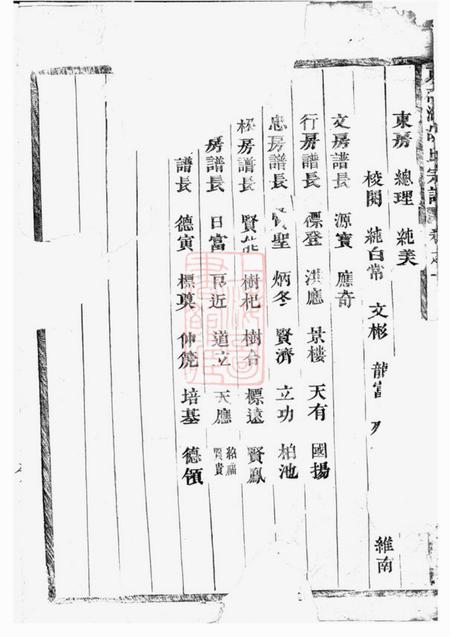 東房 總理 純美
校閱 純白 常 文彬 龍富 維南
文房譜長 源寶 應奇
行房譜長 標登 淇應 景樓 天有 國揚
忠房譜長 賢聖 炳冬 賢濟 立功 柏池
房譜長 賢能 樹杞 樹台 標遠 賢鳳
房譜長 日富 近 道立 天應 賢貴
譜長 德寅 標奠 仲箎 培基 德領